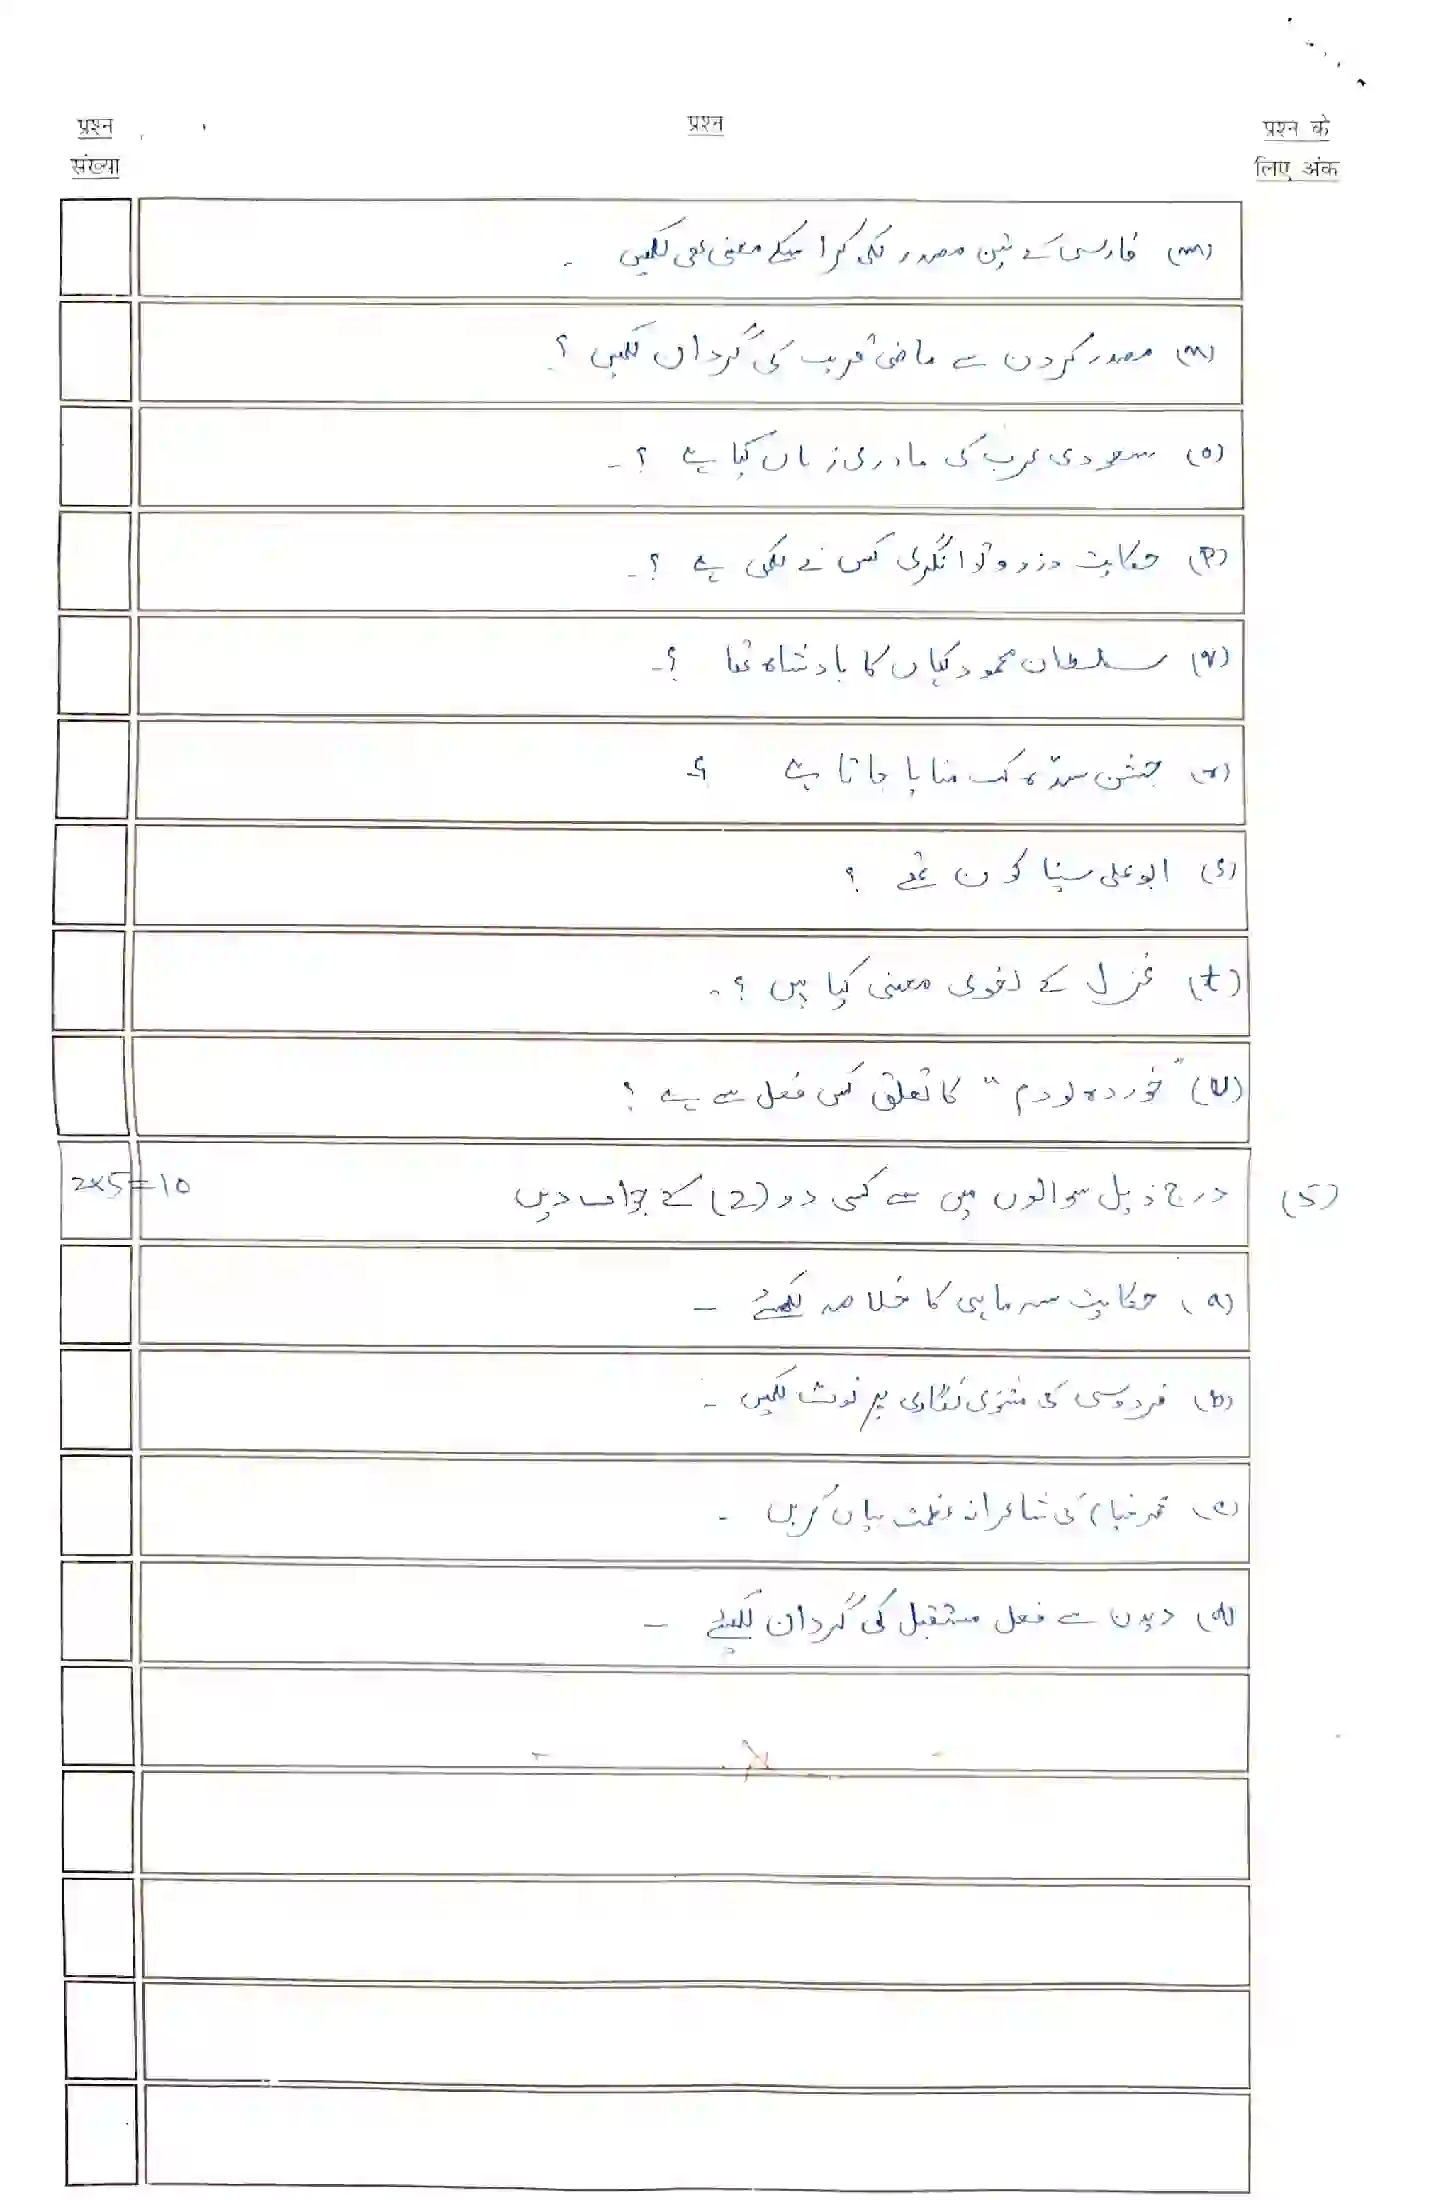 प्रश्न संख्या
प्रश्न
प्रश्न के लिए अंक
(m) فارسی کے تین مصدر لکھ کر اسکے معنی بھی لکھیں ۔
(n) مصدر کردن سے ماضی قریب کی گرداں لکھیں ؟
(o) سعودی عرب کی مادری زباں کیا ہے ؟ ۔
(p) حکایت دزد و توانگری کس نے لکھی ہے ؟ ۔
(q) سلطان محمود کہاں کا بادشاہ تھا ؟ ۔
(r) جشن سدّہ کب منایا جاتا ہے ؟
(s) ابو علی سینا کون تھے ؟
(t) غزل کے لغوی معنی کیا ہیں ؟ ۔
(u) "خوردہ بودم" کا تعلق کس فعل سے ہے ؟
(5) درج ذیل سوالوں میں سے کسی دو (2) کے جواب دیں 2x5=10
(a) حکایت سہ ماہی کا خلاصہ لکھئے ۔
(b) فردوسی کی مثنوی نگاری پر نوٹ لکھیں ۔
(c) عمر خیام کی شاعرانہ عظمت بیاں کریں ۔
(d) دیدن سے فعل مستقبل کی گردان لکھیئے ۔